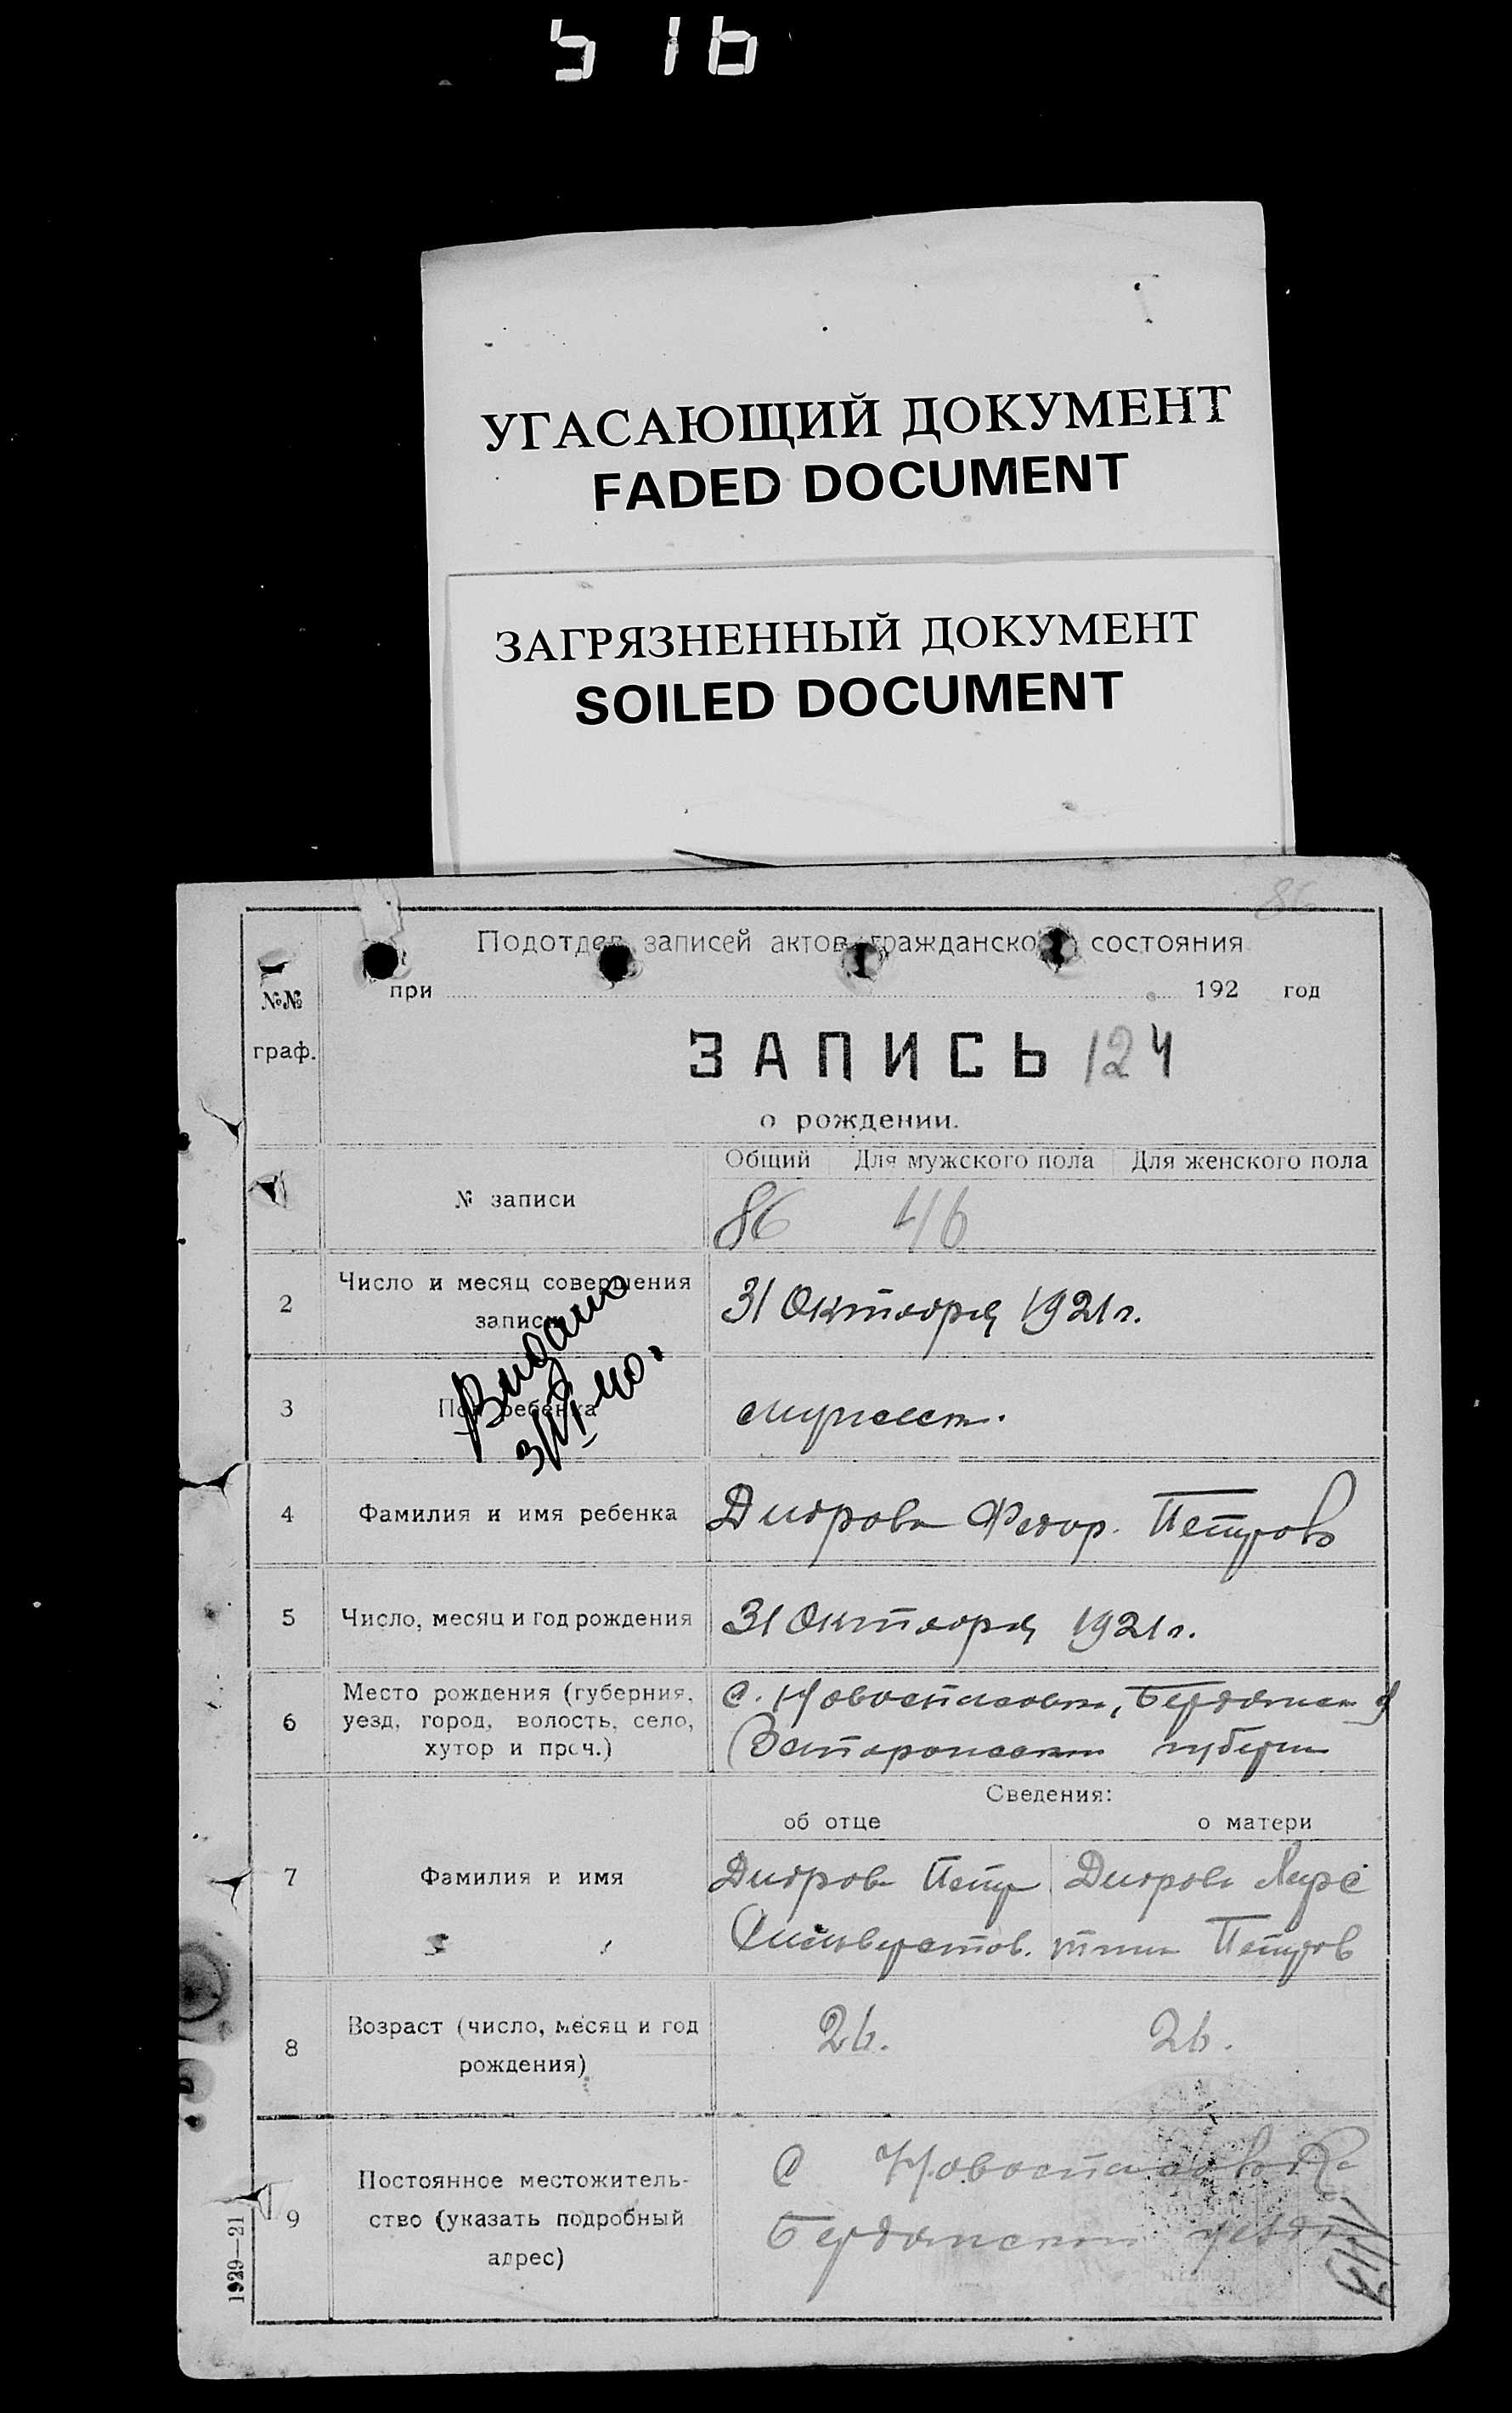 516
УГАСАЮЩИЙ ДОКУМЕНТ
FADED DOCUMENT
ЗАГРЯЗНЕННЫЙ ДОКУМЕНТ
SOILED DOCUMENT
86
Подотдел записей актов гражданского состояния
№№ при 192 год
граф.
ЗАПИСЬ 124
о рождении.
Общий Для мужского пола Для женского пола
№ записи 86 46
2 Число и месяц совершения записи 31 Октября 1921 г.
Видано
3 Пол ребенка мужеск.
4 Фамилия и имя ребенка Федор Петров
5 Число, месяц и год рождения 31 Октября 1921 г.
6 Место рождения (губерния, с. Новоспасовка, Бердянск у
уезд, город, волость, село, Запорожской губерни
хутор и проч.)
Сведения:
об отце о матери
7 Фамилия и имя Петр
Петров
8 Возраст (число, месяц и год 26. 26.
рождения)
9 Постоянное местожитель- С Новоспасовка
ство (указать подробный Бердянского уезда
адрес)
1929—21